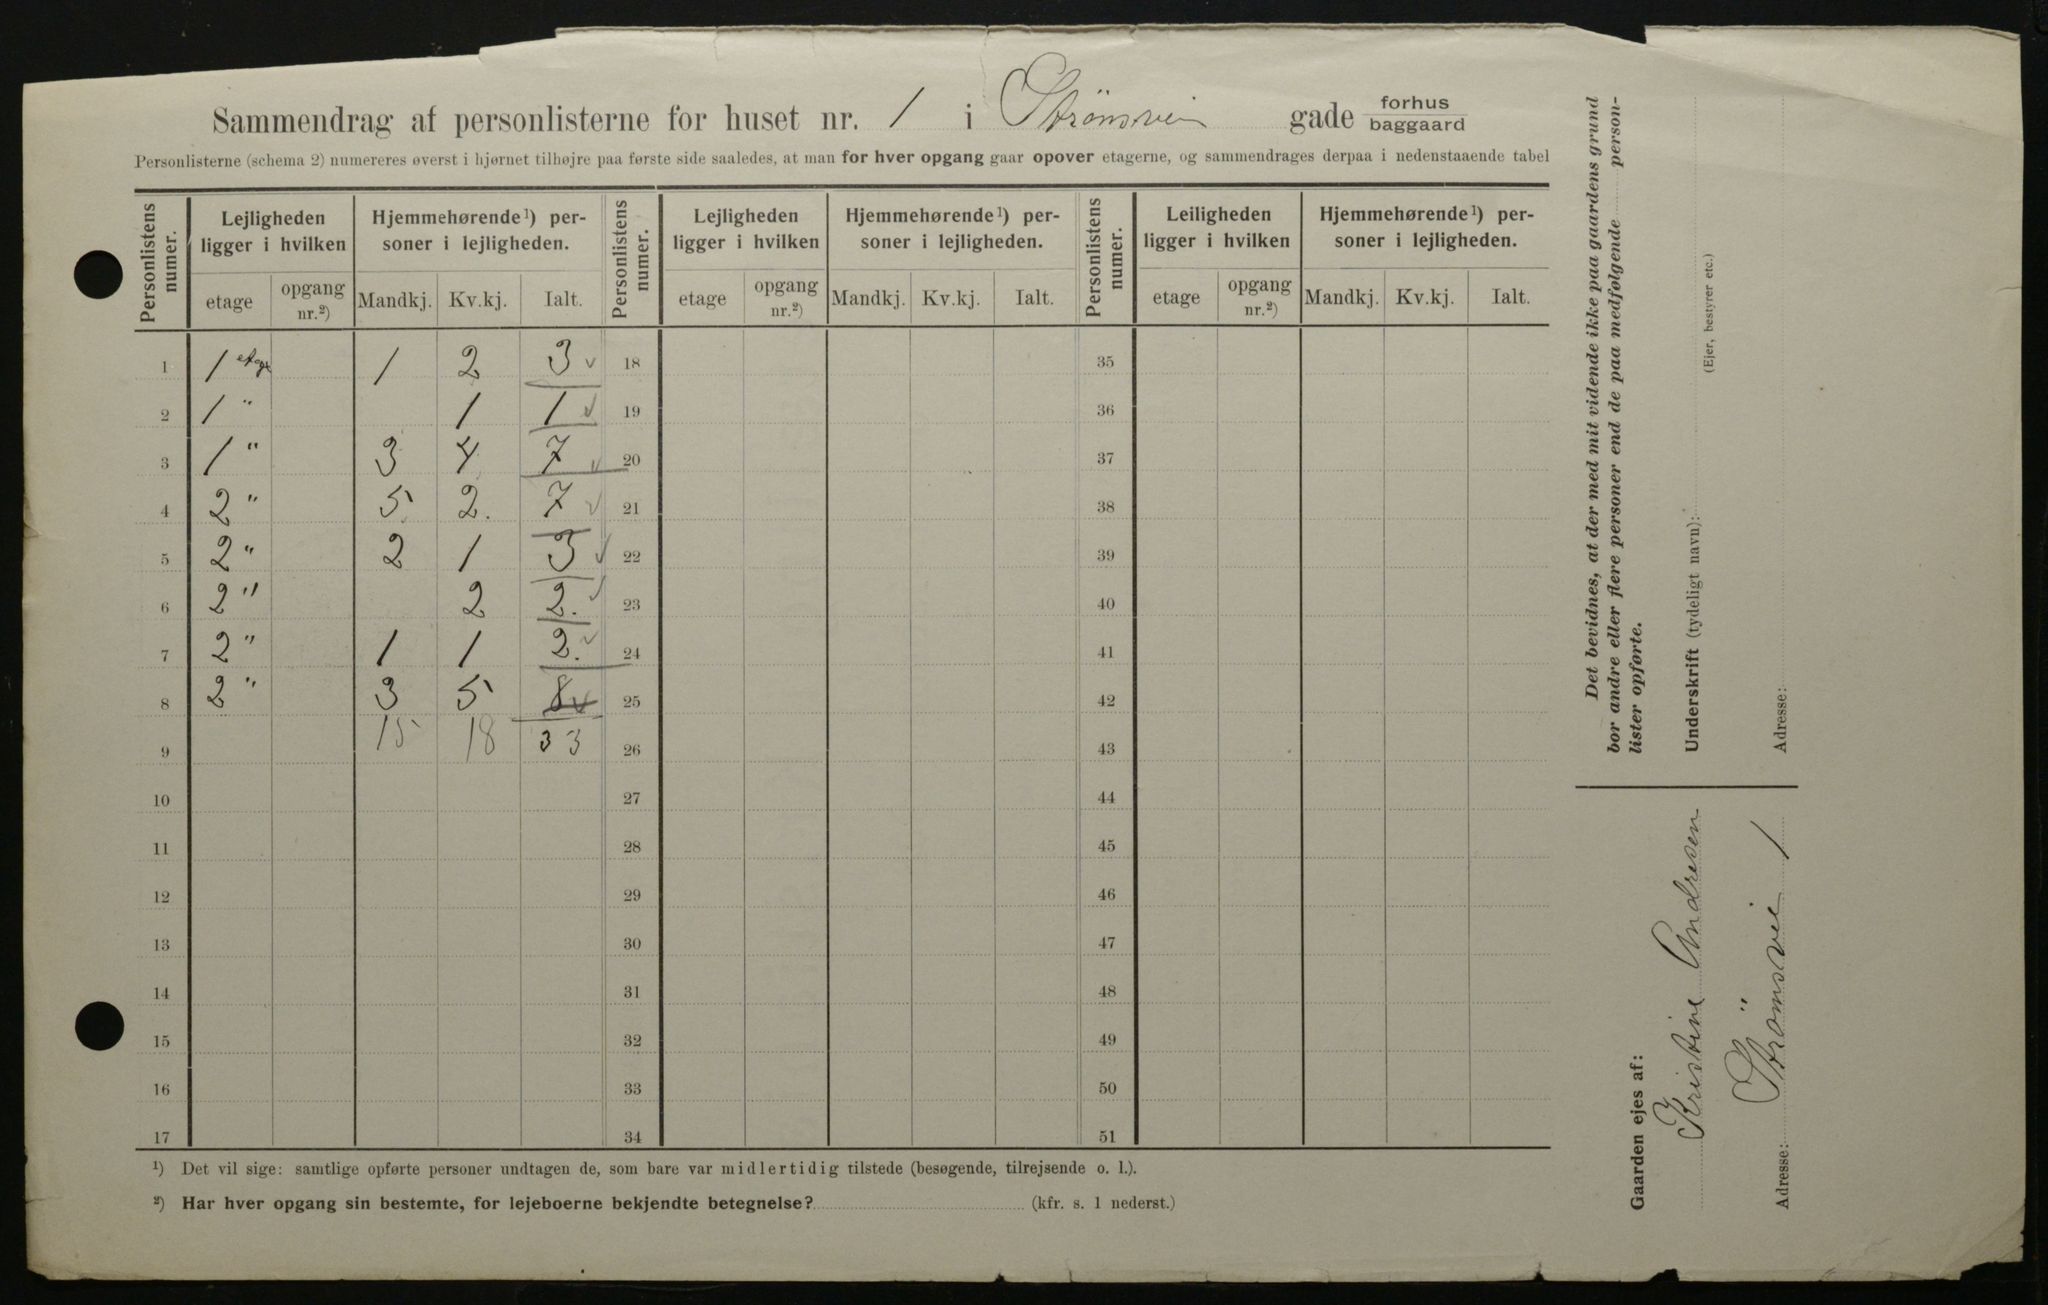 Sammendrag af personlisterne for huset nr. 1 i Strømsvei gade forhus baggaard
Personlisterne (schema 2) numereres øverst i hjørnet tilhøjre paa første side saaledes, at man for hver opgang gaar opover etagerne, og sammendrages derpaa i nedenstaaende tabel
Personlistens numer. Lejligheden ligger i hvilken Hjemmehørende ¹) personer i lejligheden. Personlistens numer. Lejligheden ligger i hvilken Hjemmehørende ¹) personer i lejligheden. Personlistens numer. Leiligheden ligger i hvilken Hjemmehørende ¹) personer i lejligheden.
etage opgang nr.²) Mandkj. Kv.kj. Ialt. etage opgang nr.²) Mandkj. Kv.kj. Ialt. etage opgang nr.²) Mandkj. Kv.kj. Ialt.
1 1 etage 1 2 3 18 35
2 1 " 1 1 19 36
3 1 " 3 4 7 20 37
4 2 " 5 2. 7 21 38
5 2 " 2 1 3 22 39
6 2 " 2 2. 23 40
7 2 " 1 1 2. 24 41
8 2 " 3 5 8 25 42
9 15 18 33 26 43
10 27 44
11 28 45
12 29 46
13 30 47
14 31 48
15 32 49
16 33 50
17 34 51
¹) Det vil sige: samtlige opførte personer undtagen de, som bare var midlertidig tilstede (besøgende, tilrejsende o. l.).
²) Har hver opgang sin bestemte, for lejeboerne bekjendte betegnelse? (kfr. s. 1 nederst.)
Det bevidnes, at der med mit vidende ikke paa gaardens grund
bor andre eller flere personer end de paa medfølgende person-
lister opførte.
Underskrift (tydeligt navn):
(Ejer, bestyrer etc.)
Adresse:
Gaarden ejes af:
Kristine Andresen
Adresse: Strömsvei 1